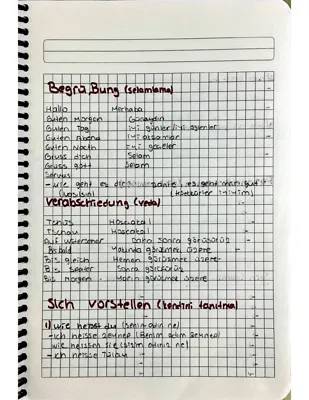 Begrü,Bung (selamlama)
Hallo Merhaba
Guten Morgen Günaydın
Guten Tag iyi günler/iyi
Guten Abend iyi akşamlar
Guten Nacht iyi geceler
Gruss dich Selam
Gruss gott Selam
Servus
-wie geht es dir es geht mir gut
Verabschiedung (veda)
Tchüs Hoşçakal
Tschau Hoşçakal
Auf Daha Sonra görüşürüz
Bis bald Yakında görüşmek üzere
Bis gleich Hemen görüşmek üzere
Bis Später Sonra görüşürüz
Bis morgen Yarın görüşmek üzere
Sich vorstellen (kendini tanıtma)
1) wie heisst du (senin adın ne)
-ich heisse Zeynep (Benim adım Zeynep)
wie heissen sie (sizin adınız ne)
-ich heisse Tülay